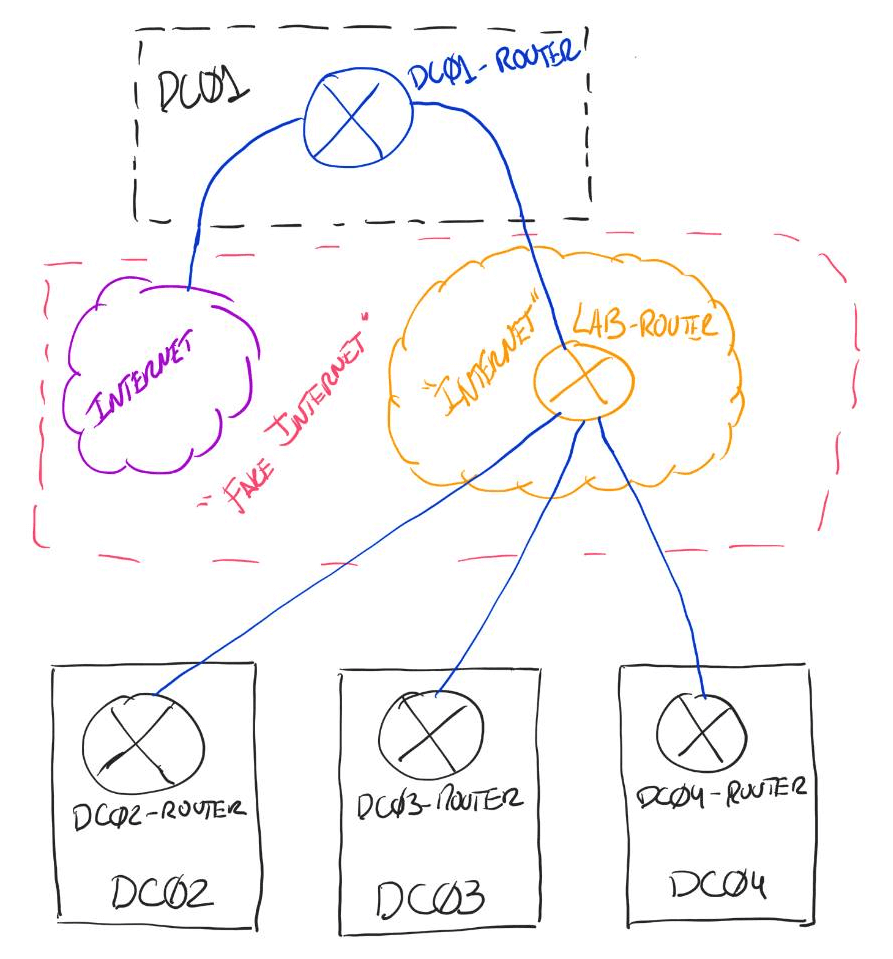 DCØ1
DCØ1-ROUTER
INTERNET
"FAKE INTERNET"
"INTERNET"
LAB-ROUTER
DCØ2-ROUTER
DCØ2
DCØ3-ROUTER
DCØ3
DCØ4-ROUTER
DCØ4